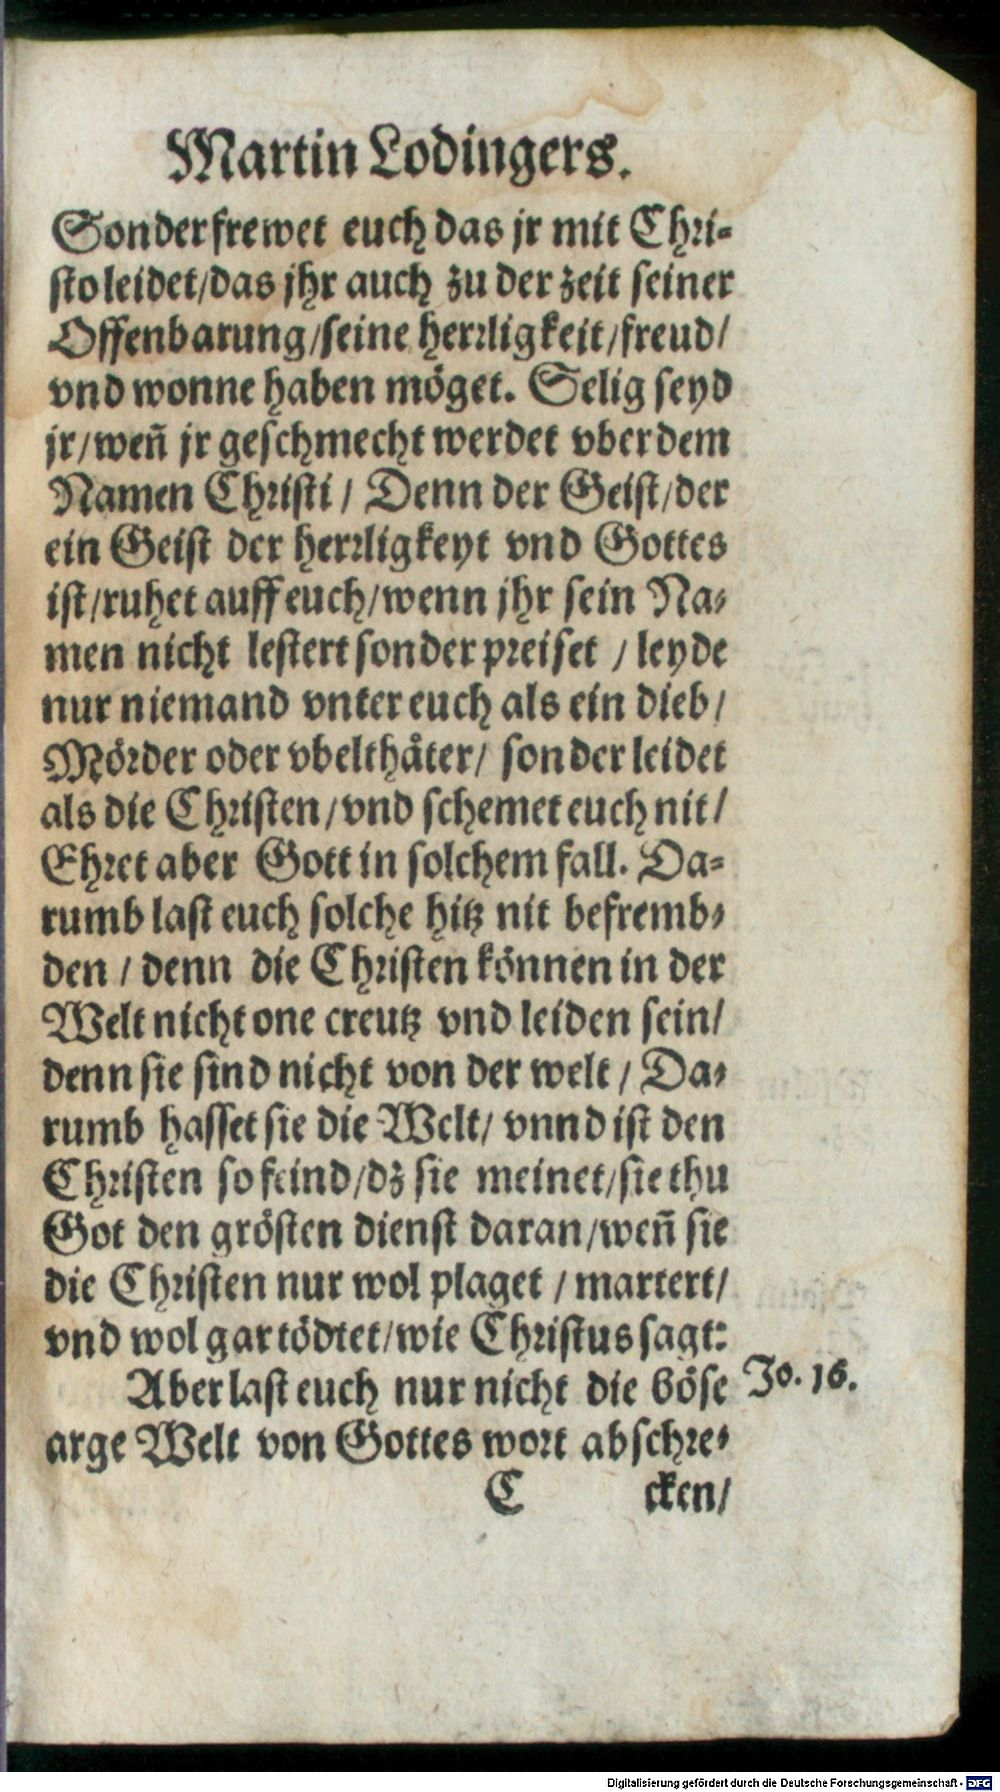 Martin Lodingers.
Sonder frewet euch das jr mit Chri-
sto leidet/das jhr auch zu der zeit seiner
Offenbarung/seine herrligkeit/freud/
vnd wonne haben möget. Selig seyd
jr/weñ jr geschmecht werdet vber dem
Namen Christi / Denn der Geist/der
ein Geist der herrligkeyt vnd Gottes
ist/ruhet auff euch/wenn jhr sein Na-
men nicht lestert sonder preiset / leyde
nur niemand vnter euch als ein dieb/
Mörder oder vbelthåter/ sonder leidet
als die Christen/vnd schemet euch nit/
Ehret aber Gott in solchem fall. Da-
rumb last euch solche hitz nit befremb-
den / denn die Christen können in der
Welt nicht one creutz vnd leiden sein/
denn sie sind nicht von der welt / Da-
rumb hasset sie die Welt/ vnnd ist den
Christen so feind/dz sie meinet/sie thu
Got den grösten dienst daran/weñ sie
die Christen nur wol plaget / martert/
vnd wol gar tödtet/wie Christus sagt:
Aber last euch nur nicht die böse
Jo. 16.
arge Welt von Gottes wort abschre-
C cken/
Digitalisierung gefördert durch die Deutsche Forschungsgemeinschaft - DFG